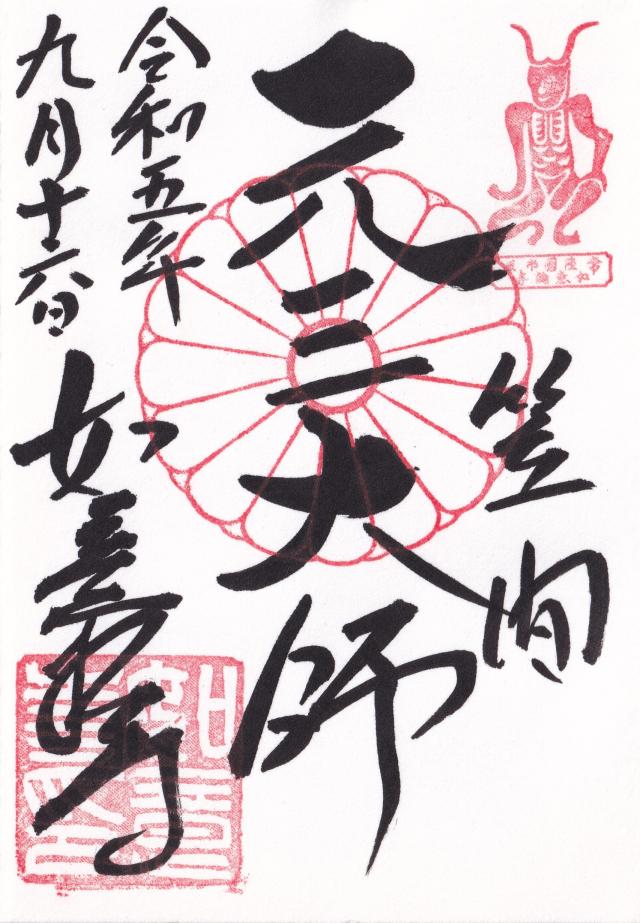 笠間
元三大師
令和五年
九月十六日
如意輪寺